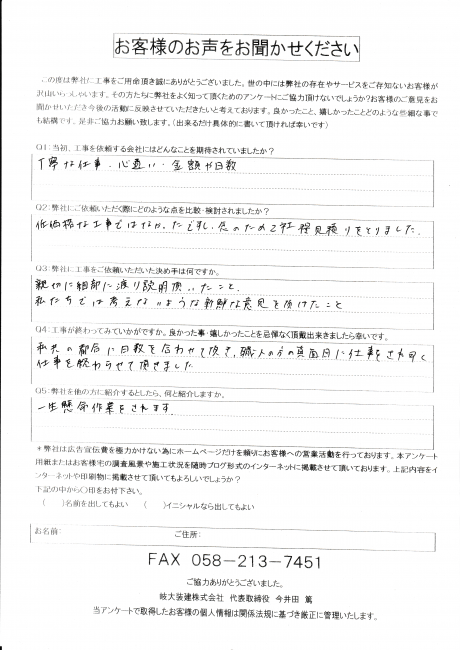 お客様のお声をお聞かせください
この度は弊社に工事をご用命頂き誠にありがとうございました。世の中には弊社の存在やサービスをご存知ないお客様が
沢山いらっしゃいます。その方たちに弊社をよく知って頂くためのアンケートにご協力頂けないでしょうか?お客様のご意見をお
聞かせいただき今後の活動に反映させていただきたいと考えております。良かったこと、嬉しかったことどのような些細な事で
も結構です。是非ご協力お願い致します。(出来るだけ具体的に書いて頂ければ幸いです)
Q1:当初、工事を依頼する会社にはどんなことを期待されていましたか?
丁寧な仕事・心遣い・金額や日数
Q2:弊社にご依頼いただく際にどのような点を比較・検討されましたか?
低価格な工事ではなかったですし、念のため2社程見積りをとりました。
Q3:弊社に工事をご依頼いただいた決め手は何ですか。
親切に細部に渡り説明頂いたこと、
私たちでは考えないような新鮮な意見を頂けたこと
Q4:工事が終わってみていかがですか。良かった事・嬉しかったことを忌憚なく頂戴出来ましたら幸いです。
私共の都合に日数を合わせて頂き、職人の方の真面目に仕事をされ早く
仕事を終わらせて頂きました
Q5:弊社を他の方に紹介するとしたら、何と紹介しますか。
一生懸命作業をされます。
*弊社は広告宣伝費を極力かけない為にホームページだけを頼りにお客様への営業活動を行っております。本アンケート
用紙またはお客様宅の調査風景や施工状況を随時ブログ形式のインターネットに掲載させて頂いております。上記内容をイ
ンターネットや印刷物に掲載させて頂いてもよろしいでしょうか?
下記の中から○印をお付下さい。
( )名前を出してもよい ( )イニシャルなら出してもよい
お名前: ご住所:
FAX 058-213-7451
ご協力ありがとうございました。
岐大装建株式会社 代表取締役 今井田 篤
当アンケートで取得したお客様の個人情報は関係法規に基づき厳正に管理いたします。